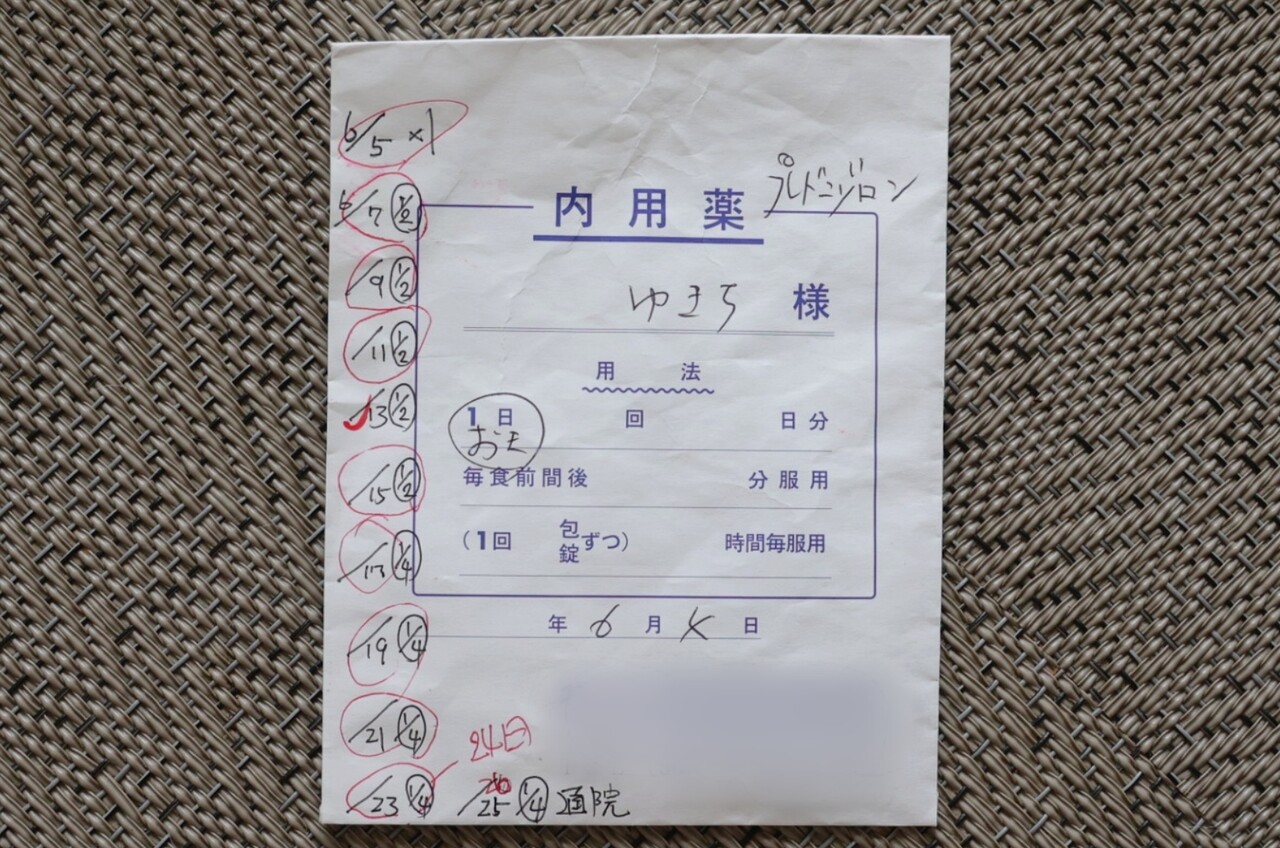 6/5 ×1
6/7 1/2
/9 1/2
/11 1/2
/13 1/2
/15 1/2
/17 1/4
/19 1/4
/21 1/4
/23 1/4
24日
/25 1/4 通院
26
プレドニゾロン
内用薬
ゆきち 様
用法
1日 回 日分
毎食前間後 分服用
(1回 包錠ずつ) 時間毎服用
年 6 月 日